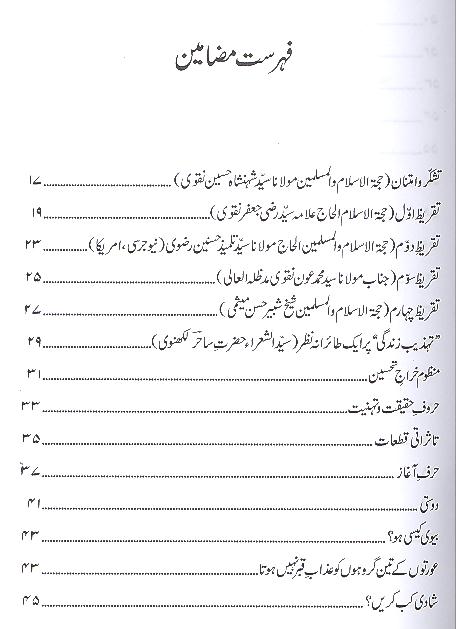 فہرست مضامین
تشکّر و امتنان (حجۃ الاسلام والمسلمین مولانا سیّد شہنشاہ حسین نقوی) ۱۷
تقریظِ اوّل (حجۃ الاسلام الحاج علامہ سیّد رضی جعفر نقوی) ۱۹
تقریظِ دوّم (حجۃ الاسلام والمسلمین الحاج مولانا سیّد تلمیذ حسنین رضوی (نیو جرسی، امریکا) ۲۳
تقریظِ سوّم (جناب مولانا سید محمد عون نقوی مدظلہ العالی) ۲۵
تقریظِ چہارم (حجۃ الاسلام والمسلمین شیخ شبیر حسن میثمی) ۲۷
”تہذیبِ زندگی“ پر ایک طائرانہ نظر (سیّد الشعراء حضرتِ ساحرؔ لکھنوی) ۲۹
منظوم خراجِ تحسین ۳۱
حروفِ حقیقت و تہنیت ۳۳
تاثراتی قطعات ۳۵
حرفِ آغاز ۳۷
دوستی ۴۱
بیوی کیسی ہو؟ ۴۳
عورتوں کے تین گروہوں کو عذابِ قبر نہیں ہوتا ۴۳
شادی کب کریں؟ ۴۵